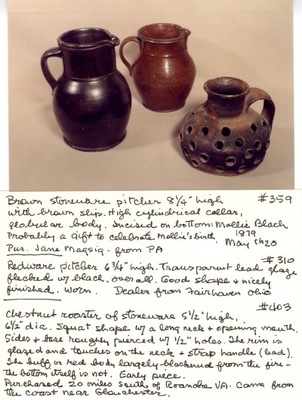 Brown stoneware pitcher 8¼" high #359
with brown slip. High cylindrical collar,
globular body. Incised on bottom: Mollie Black
Probably a gift to celebrate Mollie's birth. 1879
May th20
Pur. Jane Magsig - from PA
Redware pitcher 6¾" high. Transparent lead glaze #310
flecked w/ black, over all. Good shape & nicely
finished. Worn. Dealer from Fairhaven Ohio
Chestnut roaster of stoneware 5½" high, #403
6½" dia. Squat shape w/ a long neck & opening mouth.
Sides & base roughly pierced w/ ½" holes. The rim is
glazed and touches on the neck & strap handle (bad).
The buff or red body largely blackened from the fire -
the bottom itself is not. Early piece.
Purchased 20 miles south of Roanoke VA. Came from
the coast near Gloucester.